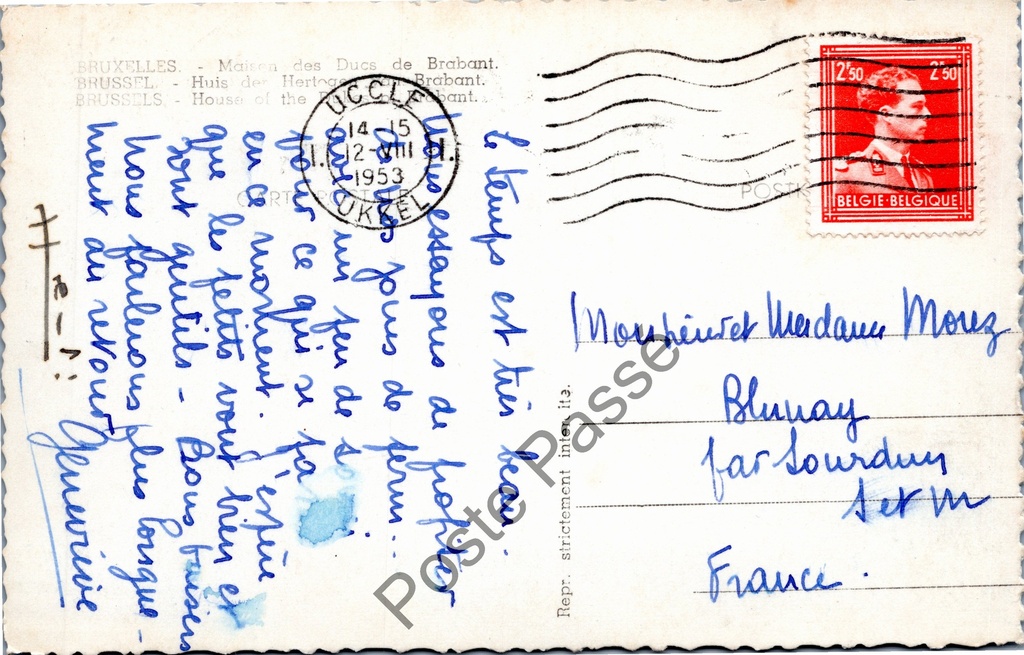 BRUXELLES. - Maison des Ducs de Brabant.
BRUSSEL. - Huis der Hertogen van Brabant.
BRUSSELS. - House of the Brabant.
UCCLE
14-15
1. 12-VIII 1.
1953
UKKEL
CARTE POSTALE
POSTK
2F50 2F50
BELGIE-BELGIQUE
le temps est très beau.
Nous essayons de profiter
de jours de ferm...
avec un peu de
pour ce qui se fa
en ce moment. J'espère
que les petits vont bien et
sont gentils - Bons baisers
Nous parlerons plus longue-
ment au retour
Geneviève
Monsieur et Madame Morez
Blunay
par Sourdun
S et M
France.
Repr. strictement interdite.
Poste Passe